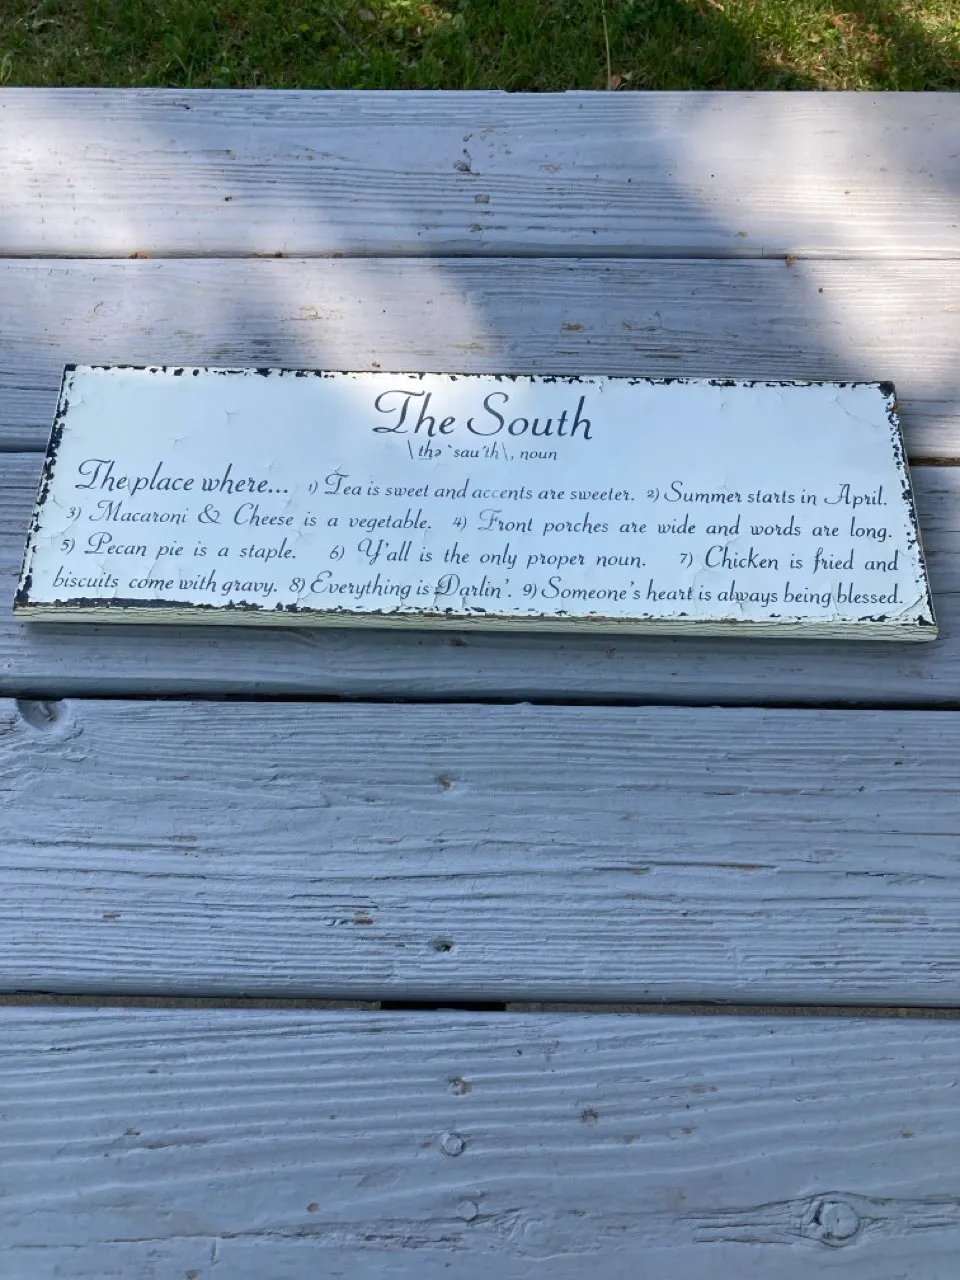 The South
\thə ˈsau̇th\, noun
The place where... 1) Tea is sweet and accents are sweeter. 2) Summer starts in April.
3) Macaroni & Cheese is a vegetable. 4) Front porches are wide and words are long.
5) Pecan pie is a staple. 6) Y'all is the only proper noun. 7) Chicken is fried and
biscuits come with gravy. 8) Everything is Darlin'. 9) Someone's heart is always being blessed.